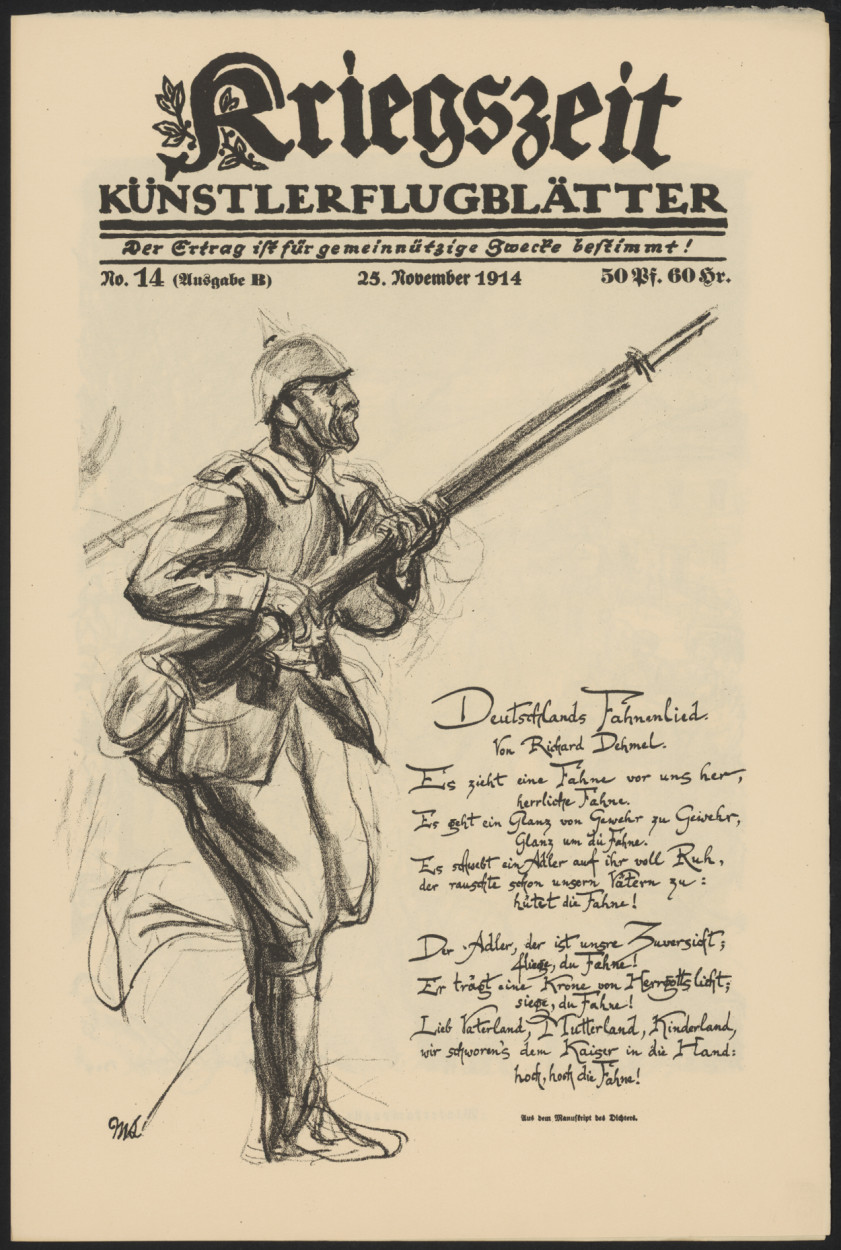 Kriegszeit
KÜNSTLERFLUGBLÄTTER
Der Ertrag ist für gemeinnützige Zwecke bestimmt!
No. 14 (Ausgabe B) 25. November 1914 50 Pf. 60 Hr.
Deutschlands Fahnenlied.
Von Richard Dehmel.
Es zieht eine Fahne vor uns her,
herrliche Fahne.
Es geht ein Glanz von Gewehr zu Gewehr,
Glanz um die Fahne.
Es schwebt ein Adler auf ihr voll Ruh,
der rauschte schon unsern Vätern zu:
hütet die Fahne!
Der Adler, der ist unsre Zuversicht;
fliege, du Fahne!
Er trägt eine Krone von Herrgottslicht;
siege, du Fahne!
Lieb Vaterland, Mutterland, Kinderland,
wir schworen's dem Kaiser in die Hand:
hoch, hoch die Fahne!
Aus dem Manuskript des Dichters.
ML